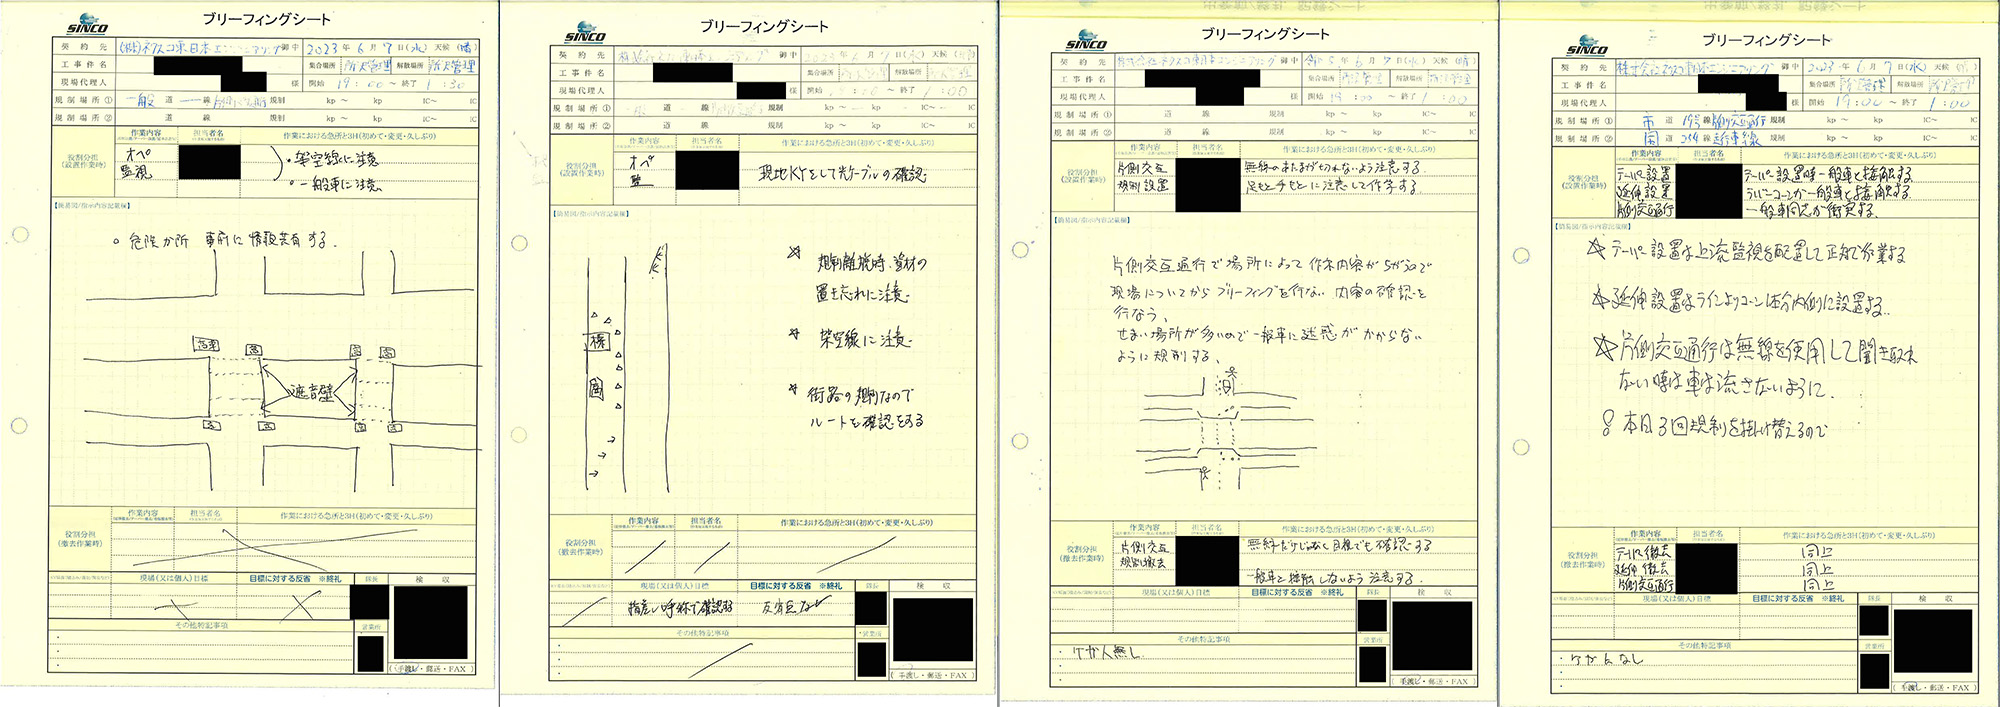 SINCO
ブリーフィングシート
契約先 (株)ネクスコ東日本エンジニアリング 御中 2023年6月7日(水) 天候(晴)
工事件名 集合場所 所沢管理 解散場所 所沢管理
現場代理人 様 開始 19:00～終了 1:30
規制場所① 一般道 一線 規制 kp～ kp IC～ IC
規制場所② 道 線 規制 kp～ kp IC～ IC
役割分担(設置作業時)
作業内容 担当者名 作業における急所と3H(初めて・変更・久しぶり)
オペ ・架空線に注意
監視 ・一般車に注意
【簡易図/指示内容記載欄】
○ 危険か所 事前に情報共有する.
遮音壁
役割分担(撤去作業時)
作業内容 担当者名 作業における急所と3H(初めて・変更・久しぶり)
現場(又は個人)目標 目標に対する反省 ※終礼 隊長 検収
その他特記事項 営業所
(手渡し・郵送・FAX)
SINCO
ブリーフィングシート
契約先 御中 2023年6月7日(水) 天候(晴)
工事件名 集合場所 解散場所
現場代理人 様 開始 19:00～終了 1:00
規制場所① 道 線 規制 kp～ kp IC～ IC
規制場所② 道 線 規制 kp～ kp IC～ IC
役割分担(設置作業時)
作業内容 担当者名 作業における急所と3H(初めて・変更・久しぶり)
オペ
監 現地KYをして光ケーブルの確認
【簡易図/指示内容記載欄】
☆ 規制離脱時、資材の
置き忘れに注意
標
☆ 架空線に注意
☆ 街路の規制なので
ルートを確認をする
役割分担(撤去作業時)
作業内容 担当者名 作業における急所と3H(初めて・変更・久しぶり)
現場(又は個人)目標 目標に対する反省 ※終礼 隊長 検収
指差し呼称で確認する 反省点なし
その他特記事項 営業所
(手渡し・郵送・FAX)
SINCO
ブリーフィングシート
契約先 株式会社ネクスコ東日本エンジニアリング 御中 令和5年6月7日(水) 天候(晴)
工事件名 集合場所 所沢管理 解散場所 所沢管理
現場代理人 様 開始 19:00～終了 1:00
規制場所① 道 線 規制 kp～ kp IC～ IC
規制場所② 道 線 規制 kp～ kp IC～ IC
役割分担(設置作業時)
作業内容 担当者名 作業における急所と3H(初めて・変更・久しぶり)
片側交互 無線のあたまが切れないよう注意する
規制設置 足もと手もとに注意して作業する
【簡易図/指示内容記載欄】
片側交互通行で場所によって作業内容がちがうので
現場についてからブリーフィングを行ない 内容の確認を
行なう、
せまい場所が多いので一般車に迷惑がかからない
ように規制する、
役割分担(撤去作業時)
作業内容 担当者名 作業における急所と3H(初めて・変更・久しぶり)
片側交互 無線だけじゃなく目視でも確認する
規制撤去 一般車と接触しないよう注意する.
現場(又は個人)目標 目標に対する反省 ※終礼 隊長 検収
その他特記事項 営業所
・ケガ人無し
(手渡し・郵送・FAX)
SINCO
ブリーフィングシート
契約先 株式会社ネクスコ東日本エンジニアリング 御中 2023年6月7日(水) 天候(晴)
工事件名 集合場所 所沢管理 解散場所
現場代理人 様 開始 19:00～終了 1:00
規制場所① 市道 19号線 片側交互通行規制 kp～ kp IC～ IC
規制場所② 国道 254線 規制 kp～ kp IC～ IC
役割分担(設置作業時)
作業内容 担当者名 作業における急所と3H(初めて・変更・久しぶり)
テーパー設置 テーパー設置時一般車と接触する
延伸設置 ラバーコーンが一般車と接触する.
片側交互通行 一般車同志が衝突する.
【簡易図/指示内容記載欄】
☆テーパー設置は上流監視を配置して正対で作業する
☆延伸設置はラインよりコーン1本分内側に設置する.
☆片側交互通行は無線を使用して聞き取れ
ない時は車は流さないように.
本日3回規制を掛け替えるので
役割分担(撤去作業時)
作業内容 担当者名 作業における急所と3H(初めて・変更・久しぶり)
テーパー撤去 同上
延伸撤去 同上
片側交互通行 同上
現場(又は個人)目標 目標に対する反省 ※終礼 隊長 検収
その他特記事項 営業所
・ケガ人なし
(手渡し・郵送・FAX)